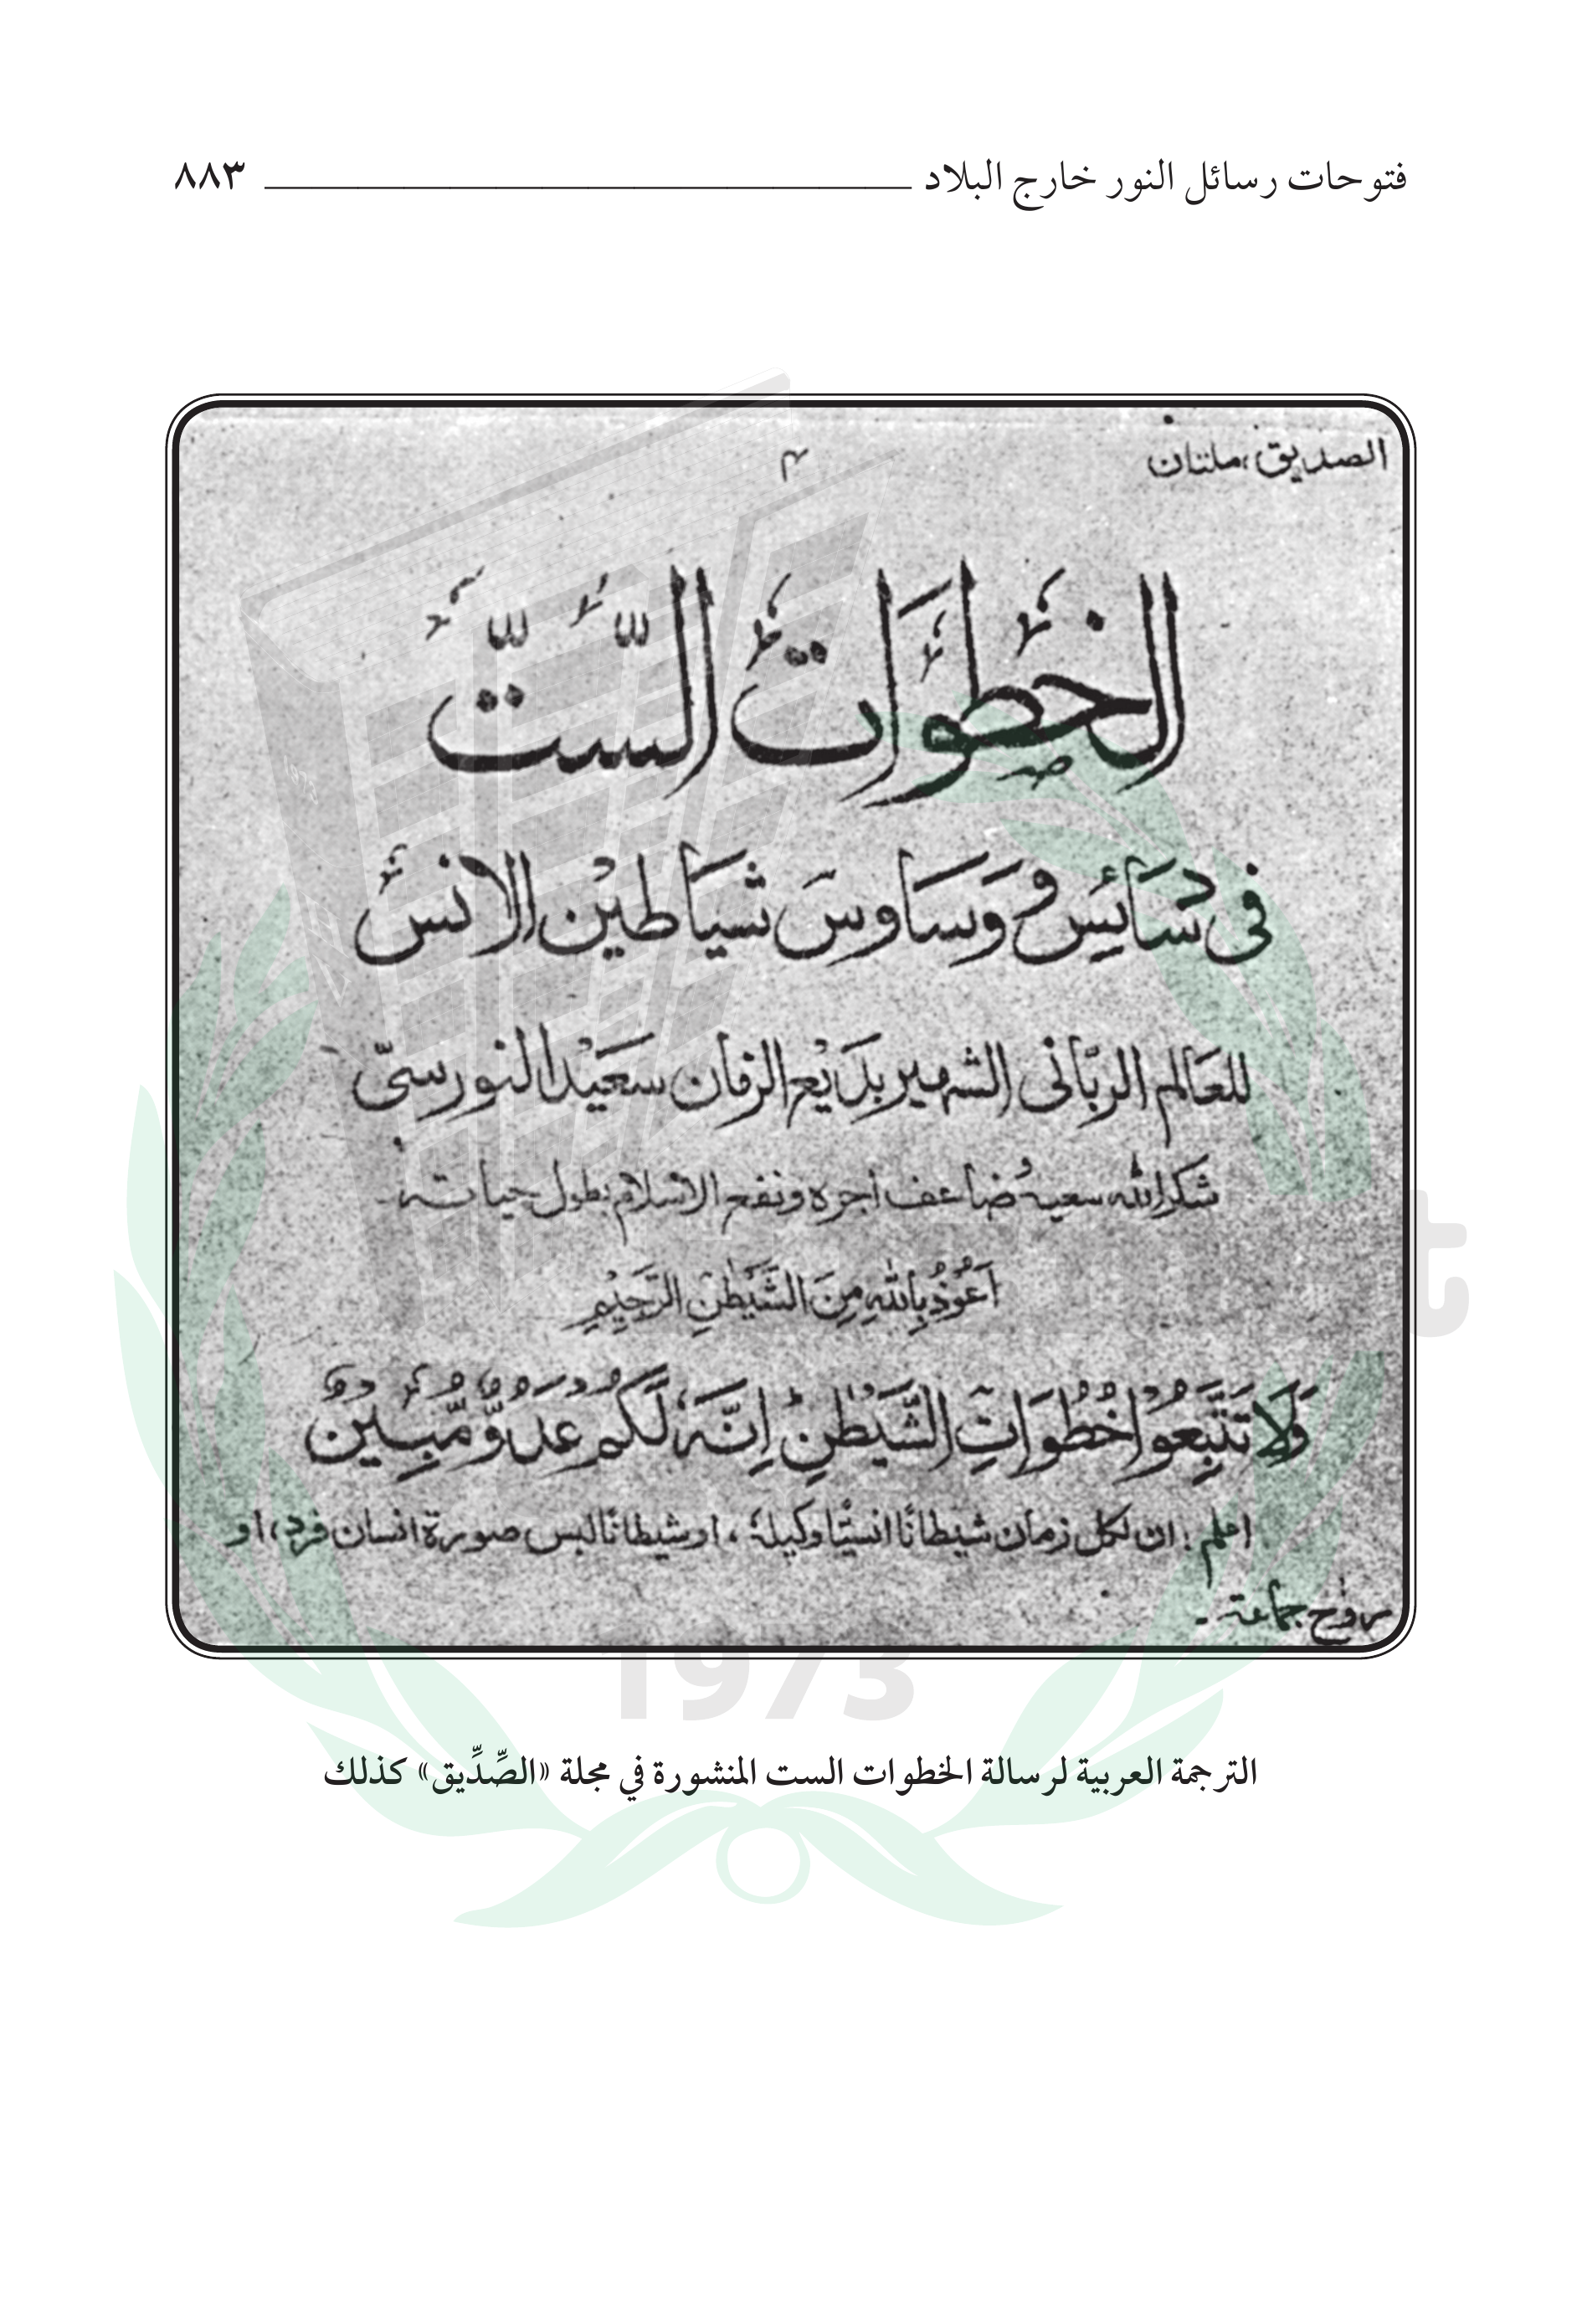 فتوحات رسائل النور خارج البلاد ٨٨٣
الصديق، ملتان
٤
الخُطُوَاتُ السِّتّ
فى دسَائِسِ وَسَاوِسَ شيَاطيْن الانس
للعَالم الربّانى الشهير بدَيْع الزمان سعَيْد النورسىّ
شكر الله سعيه ضاعف اجره ونفع الاسلام بطول حياته
اَعُوْذُ بِاللهِ مِنَ الشَّيْطٰنِ الرَّجِيْمِ
وَلَا تَتَّبِعُوْا خُطُوَاتِ الشَّيْطٰنِ اِنَّهٗ لَكُمْ عَدُوٌّ مُّبِيْنٌ
اعلم: ان لكل زمان شيطانًا انسيًّا وكيلهٗ، او شيطانًا لبس صورة انسان فرد، او
روح جماعة -
1973
t
الترجمة العربية لرسالة الخطوات الست المنشورة في مجلة «الصِّدِّيق» كذلك